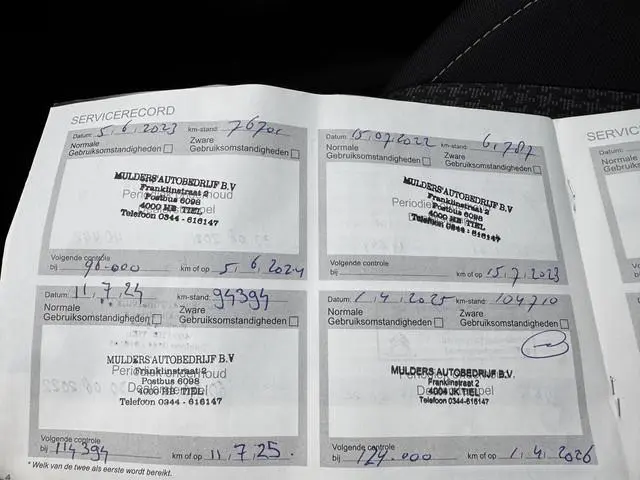 SERVICERECORD
Datum: 5.6.2023 km-stand:
Normale Gebruiksomstandigheden
Zware Gebruiksomstandigheden
MULDERS AUTOBEDRIJF B.V
Franklinstraat 2
Postbus 6098
4000 HB TIEL
Telefoon 0344 - 616147
Volgende controle
bij 90.000 km of op 5.6.2024
Datum: 15.07.2022 km-stand:
Normale Gebruiksomstandigheden
Zware Gebruiksomstandigheden
MULDERS AUTOBEDRIJF B.V
Franklinstraat 2
Postbus 6098
4000 HB TIEL
Telefoon 0344 - 616147
Volgende controle
bij km of op 15.7.2023
Datum: 11.7.24 km-stand: 94394
Normale Gebruiksomstandigheden
Zware Gebruiksomstandigheden
MULDERS AUTOBEDRIJF B.V
Franklinstraat 2
Postbus 6098
4000 HB TIEL
Telefoon 0344 - 616147
Volgende controle
bij 114394 km of op 11.7.25.
Datum: 1.4.2025 km-stand: 104710
Normale Gebruiksomstandigheden
Zware Gebruiksomstandigheden
MULDERS AUTOBEDRIJF B.V.
Franklinstraat 2
4004 JK TIEL
Telefoon 0344-616147
Volgende controle
bij 124.000 km of op 1.4.2026
* Welk van de twee als eerste wordt bereikt.
4
SERVIC